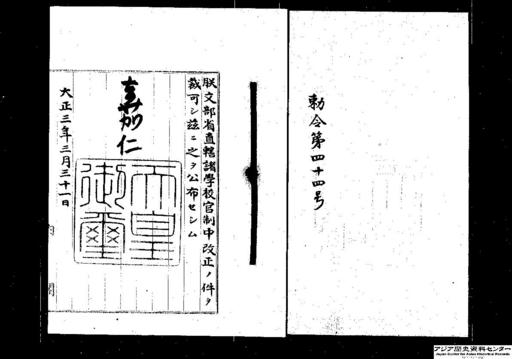 勅令第四十四号
朕文部省直轄諸學校官制中改正ノ件ヲ
裁可シ茲ニ之ヲ公布セシム
嘉仁
天皇
御璽
大正三年三月三十一日
内閣
アジア歴史資料センター
Japan Center for Asian Historical Records